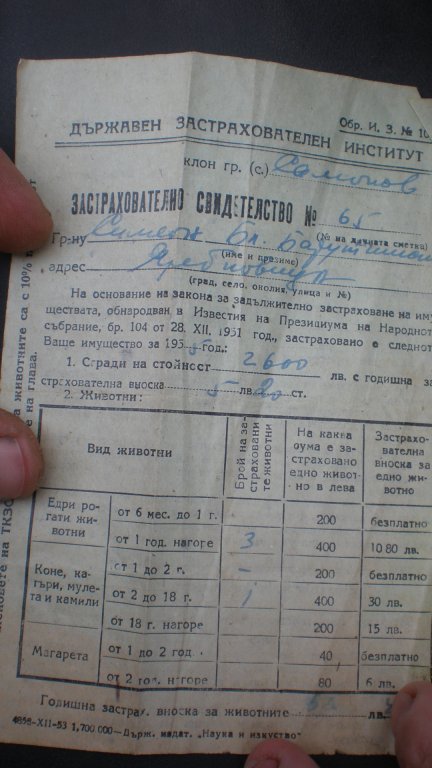 Обр. И. З. № 10
ДЪРЖАВЕН ЗАСТРАХОВАТЕЛЕН ИНСТИТУТ
клон гр. (с.) Самоков
ЗАСТРАХОВАТЕЛНО СВИДЕТЕЛСТВО № 65
(№ на личната сметка)
Гр-ну Симеон Ал.
(име и презиме)
адрес
(град, село, околия, улица и №)
На основание на закона за задължително застраховане на иму
ществата, обнародван в Известия на Президиума на Народнот
събрание, бр. 104 от 28. XII. 1951 год., застраховано е следнот
Ваше имущество за 195 5 год.:
1. Сгради на стойност 2600 лв. с годишна за
страхователна вноска 5 лв. 20 ст.
2. Животни:
Вид животни
Брой на за-
страховани
те животни
На каква
сума е за-
страховано
едно живот-
но в лева
Застрахо-
вателна
вноска за
едно жи-
вотно
Едри ро-
гати жи-
вотни
от 6 мес. до 1 г. 200 безплатно
от 1 год. нагоре 3 400 10 80 лв.
Коне, ка-
търи, муле-
та и камили
от 1 до 2 г. - 200 безплатно
от 2 до 18 г. 1 400 30 лв.
от 18 г. нагоре 200 15 лв.
Магарета
от 1 до 2 год. 40 безплатно
от 2 год. нагоре 80 6 лв.
Годишна застрах. вноска за животните лв.
4858-XII-53 1,700 000—Държ. издат. „Наука и изкуство"
а животните са с 10%
членовете на ТКЗС
не на глава.